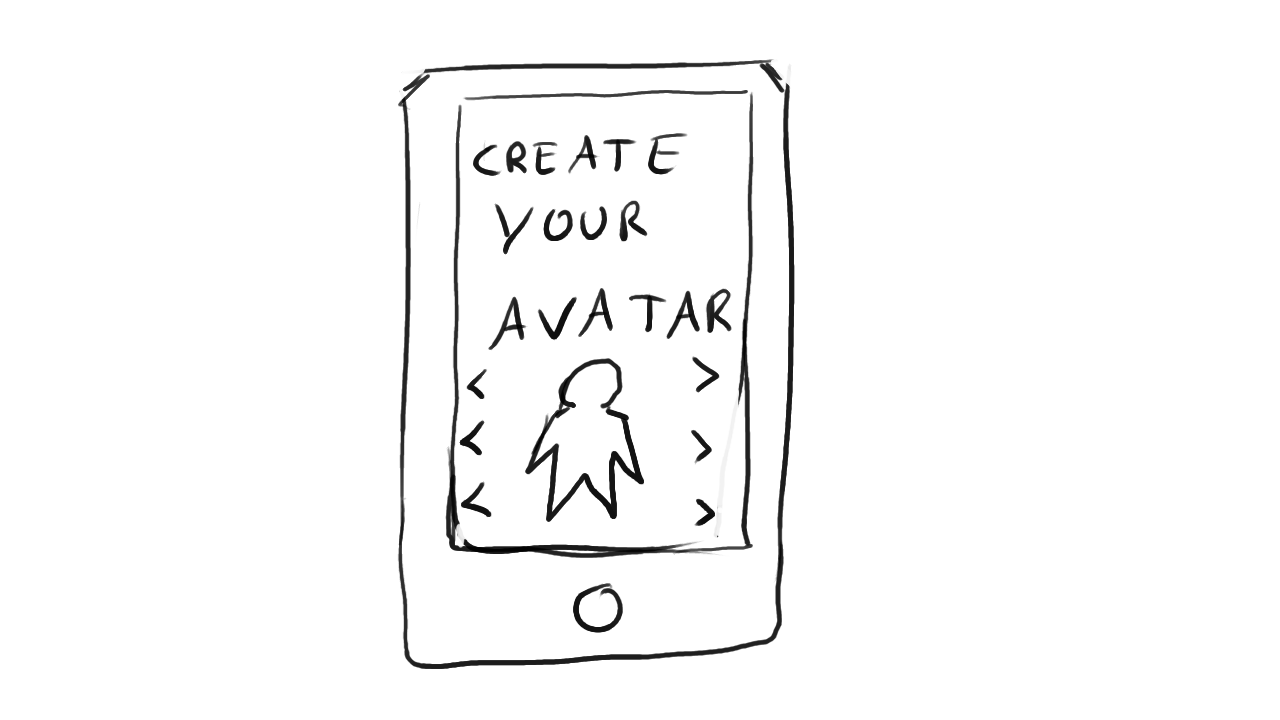 CREATE
YOUR
AVATAR
< >
< >
< >